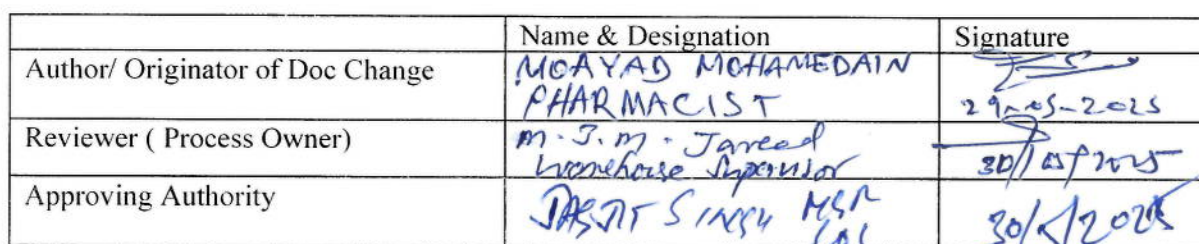 Name & Designation Signature
Author/ Originator of Doc Change MOAYAD MOHAMEDAIN
PHARMACIST 29-05-2025
Reviewer ( Process Owner) M.J.M. Javeed
Warehouse Supervisor 30/05/2025
Approving Authority JASJIT SINGH MGR
30/5/2025